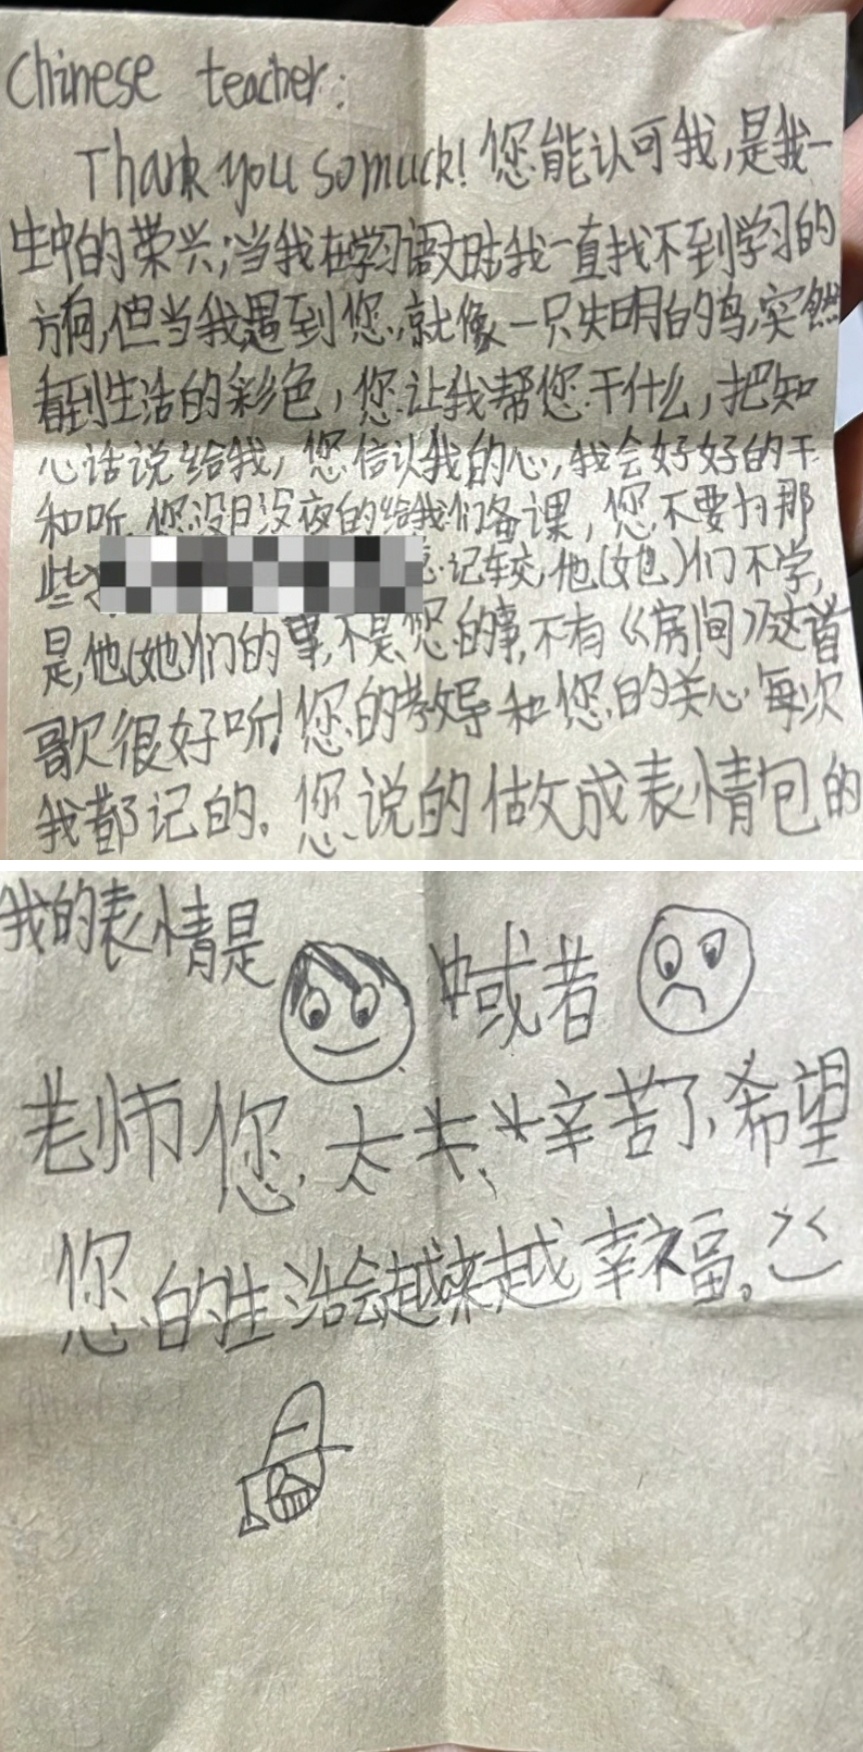 Chinese teacher:
Thank you so much! 您能认可我,是我一
生中的荣兴;当我在学习语文时我一直找不到学习的
方向,但当我遇到您,就像一只失明的鸟,突然
看到生活的彩色,您让我帮您干什么,把知
心话说给我,您信认我的心,我会好好的干
和听.您没日没夜的给我们备课,您不要为那
些 记较,他(她)们不学,
是,他(她)们的事,不是您的事,不有《房间》这首
歌很好听!您的教导和您的关心每次
我都记的。您说的做成表情包的
我的表情是 或者
老师您太 辛苦了,希望
您的生活会越来越幸福。